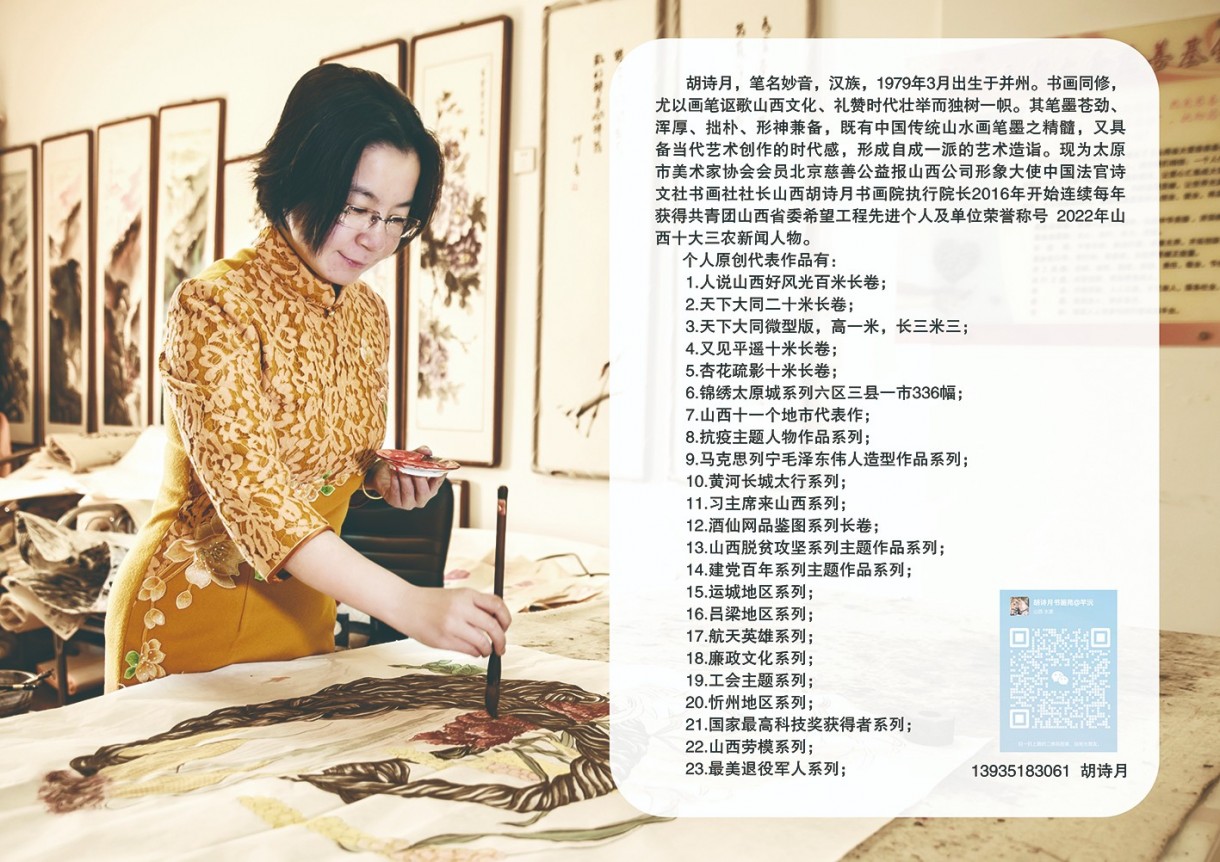 胡诗月，笔名妙音，汉族，1979年3月出生于并州。书画同修，
尤以画笔讴歌山西文化、礼赞时代壮举而独树一帜。其笔墨苍劲、
浑厚、拙朴、形神兼备，既有中国传统山水画笔墨之精髓，又具
备当代艺术创作的时代感，形成自成一派的艺术造诣。现为太原
市美术家协会会员北京慈善公益报山西公司形象大使中国法官诗
文社书画社社长山西胡诗月书画院执行院长2016年开始连续每年
获得共青团山西省委希望工程先进个人及单位荣誉称号 2022年山
西十大三农新闻人物。
个人原创代表作品有：
1.人说山西好风光百米长卷；
2.天下大同二十米长卷；
3.天下大同微型版，高一米，长三米三；
4.又见平遥十米长卷；
5.杏花疏影十米长卷；
6.锦绣太原城系列六区三县一市336幅；
7.山西十一个地市代表作；
8.抗疫主题人物作品系列；
9.马克思列宁毛泽东伟人造型作品系列；
10.黄河长城太行系列；
11.习主席来山西系列；
12.酒仙网品鉴图系列长卷；
13.山西脱贫攻坚系列主题作品系列；
14.建党百年系列主题作品系列；
15.运城地区系列；
16.吕梁地区系列；
17.航天英雄系列；
18.廉政文化系列；
19.工会主题系列；
20.忻州地区系列；
21.国家最高科技奖获得者系列；
22.山西劳模系列；
23.最美退役军人系列；
13935183061 胡诗月